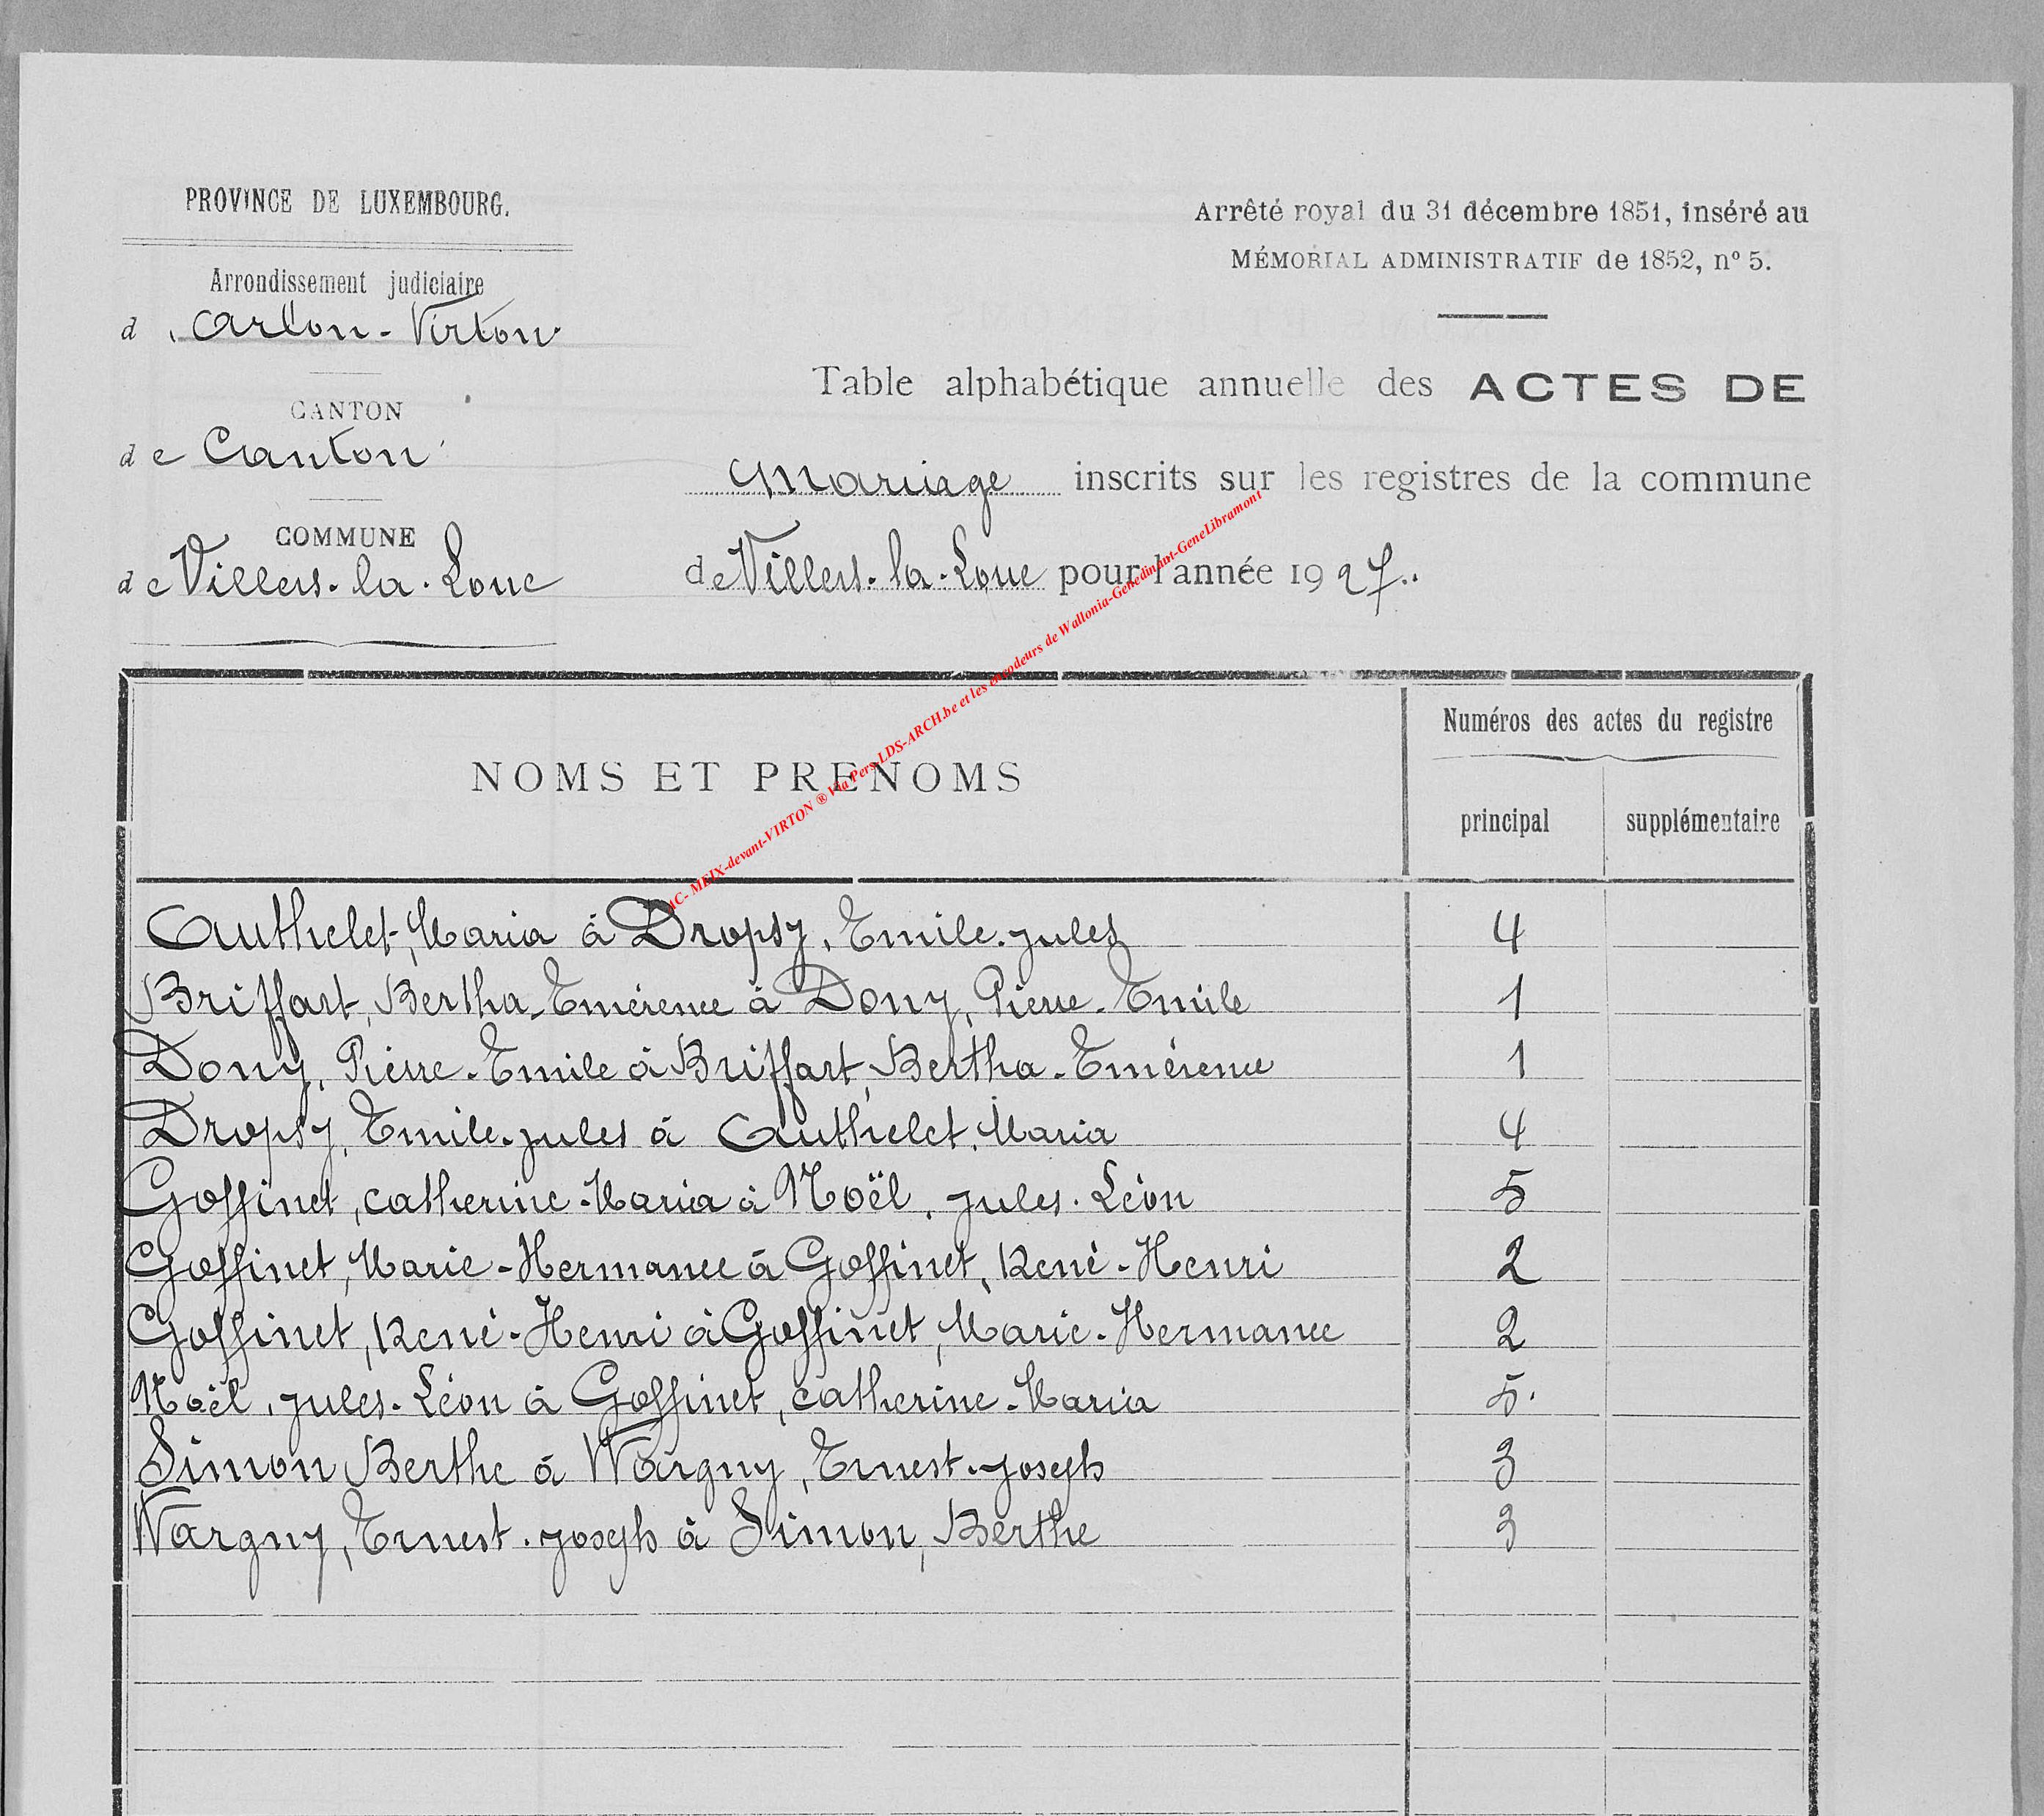 PROVINCE DE LUXEMBOURG.
Arrondissement judiciaire
d'Arlon-Virton
CANTON
de Canton
COMMUNE
de Villers-la-Loue
Arrêté royal du 31 décembre 1851, inséré au
MÉMORIAL ADMINISTRATIF de 1852, nº 5.
Table alphabétique annuelle des ACTES DE
Mariage inscrits sur les registres de la commune
de Villers-la-Loue pour l'année 1927.
MEIX-devant-VIRTON ® Via Pers LDS-ARCH.be et les encodeurs de Wallonia-Genedinant-GeneLibramont
NOMS ET PRENOMS
Numéros des actes du registre
principal supplémentaire
Authelet, Maria à Dropsy, Emile-Jules 4
Briffart, Bertha-Emérence à Dony, Pierre-Emile 1
Dony, Pierre-Emile à Briffart, Bertha-Emérence 1
Dropsy, Emile-Jules à Authelet, Maria 4
Goffinet, Catherine-Maria à Noël, Jules-Léon 5
Goffinet, Marie-Hermance à Goffinet, René-Henri 2
Goffinet, René-Henri à Goffinet, Marie-Hermance 2
Noël, Jules-Léon à Goffinet, Catherine-Maria 5.
Simon Berthe à Wargny, Ernest-Joseph 3
Wargny, Ernest-Joseph à Simon, Berthe 3